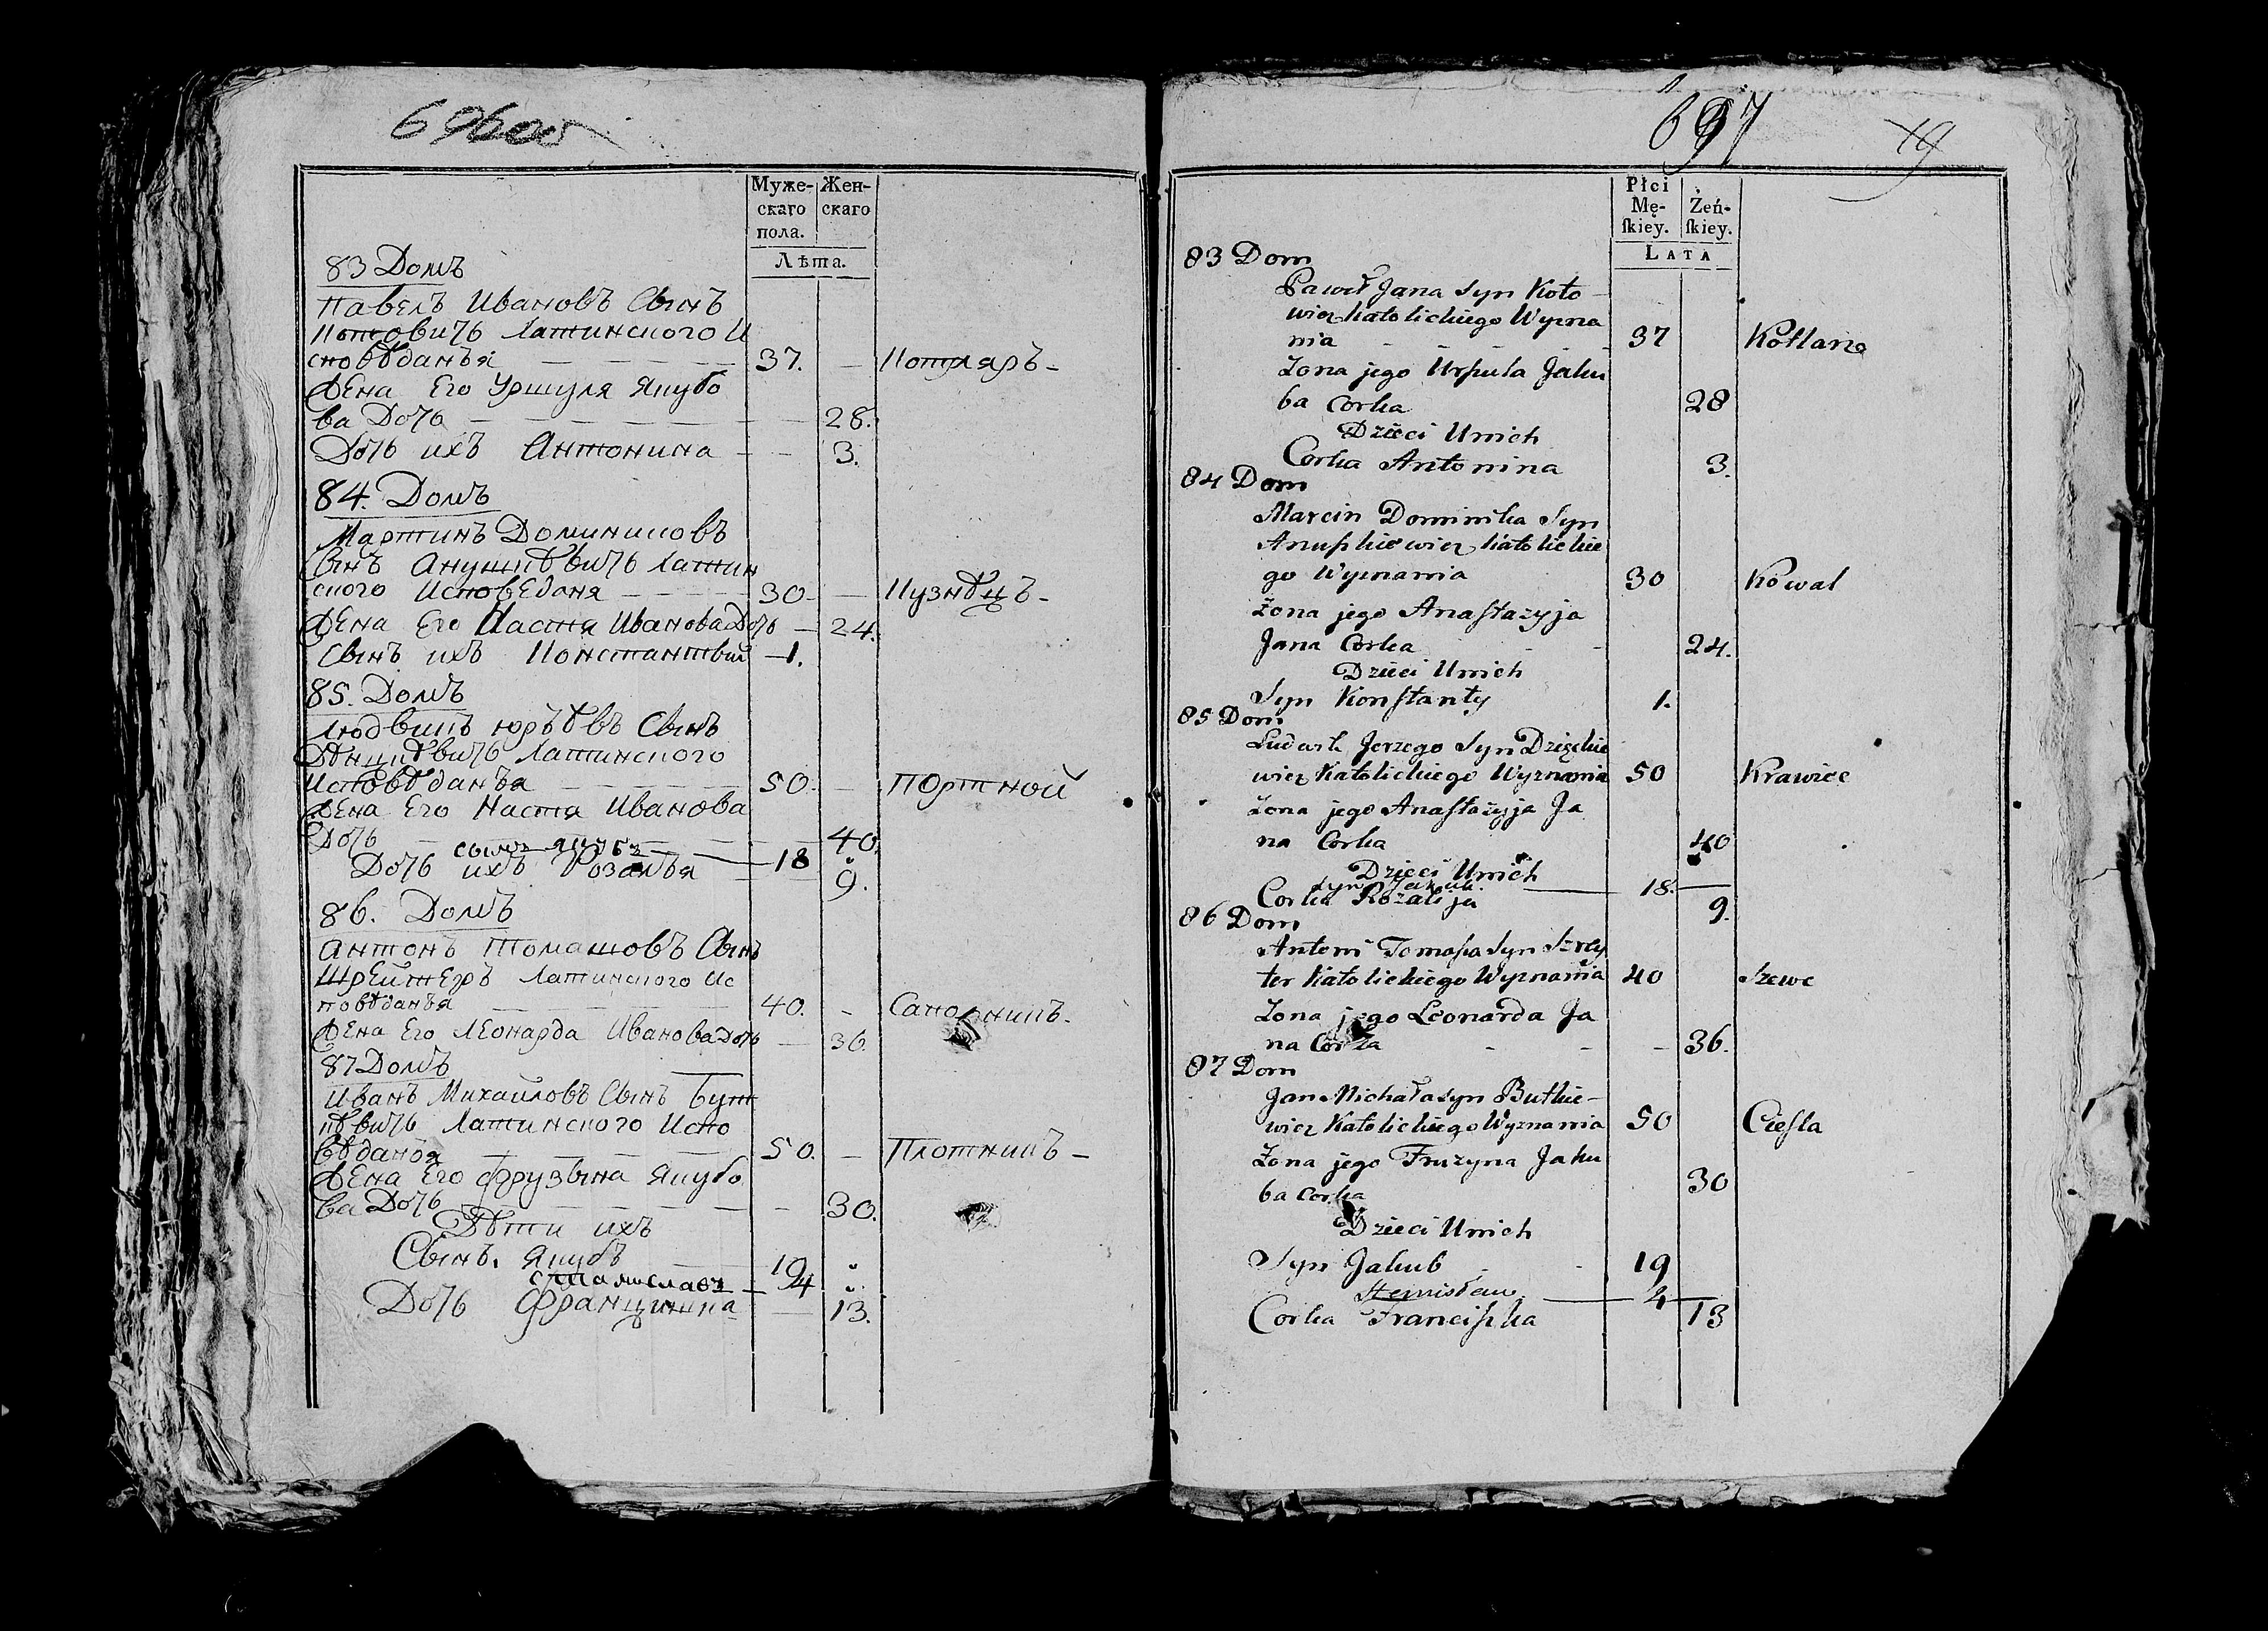 696об
Муже-
скаго
пола.
Жен-
скаго
Лѣта.
83 Домъ
Павелъ Ивановъ Сынъ
Котовичь Латинского И
споведанъя 37. Котляръ
Жена Его Уршуля Якубо
ва Дочь 28.
Дочь ихъ Антонина 3.
84. Домъ
Мартинъ Доминиковъ
Сынъ Анушкѣвичь Латин
ского Исповеданя 30 Кузнѣцъ
Жена Его Настя Иванова Дочь 24.
Сынъ ихъ Константый 1.
85. Домъ
Людвикъ Юръѣвъ Сынъ
Латинского
Исповѣданъя 50. Портной
Жена Его Наста Иванова
Дочь 40.
Сынъ Якубъ 18 "
Дочь ихъ Розалъя 9.
86. Домъ
Антонъ Томашовъ Сынъ
Шрейтеръ Латинского Ис
повѣданъя 40. Сапожникъ
Жена Его Леонарда Иванова Дочь 36.
87 Домъ
Иванъ Михайловъ Сынъ Бут
кѣвичь Латинского Испо
вѣданъя 50. Плотникъ
Жена Его Фрузына Якубо
ва Дочь 30.
Дѣти ихъ
Сынъ. Якубъ 19 "
Станиславъ 4 "
Дочь Францишка 13.
697
79
Płci
Mę-
ſkiey.
Żeń-
ſkiey.
LATA
83 Dom
Paweł Jana Syn Koto
wicz Katolickiego Wyzna
nia 37 Kotlarz
Żona jego Urszula Jaku
ba Corka 28
Dzieci Unich
Corka Antonina 3.
84 Dom
Marcin Dominika Syn
Anuszkiewicz Katolickie
go Wyznania 30 Kowal
Żona jego Anastazyja
Jana Corka 24.
Dzieci Unich
Syn Konstanty 1.
85 Dom
Ludwik Jerzego Syn Dzięckie
wicz Katolickiego Wyznania 50 Krawiec
Żona jego Anastazyja Ja
na Corka 40
Dzieci Unich
Syn Jakub 18.
Corka Rozalija 9.
86 Dom
Antoni Tomasza Syn Szrey
ter Katolickiego Wyznania 40 Szewc
Żona jego Leonarda Ja
na Corka 36.
87 Dom
Jan Michała Syn Butkie-
wicz Katolickiego Wyznania 50 Cieſla
Żona jego Fruzyna Jaku
ba Corka 30
Dzieci Unich
Syn Jakub 19
Stanisław 4
Corka Franciszka 13